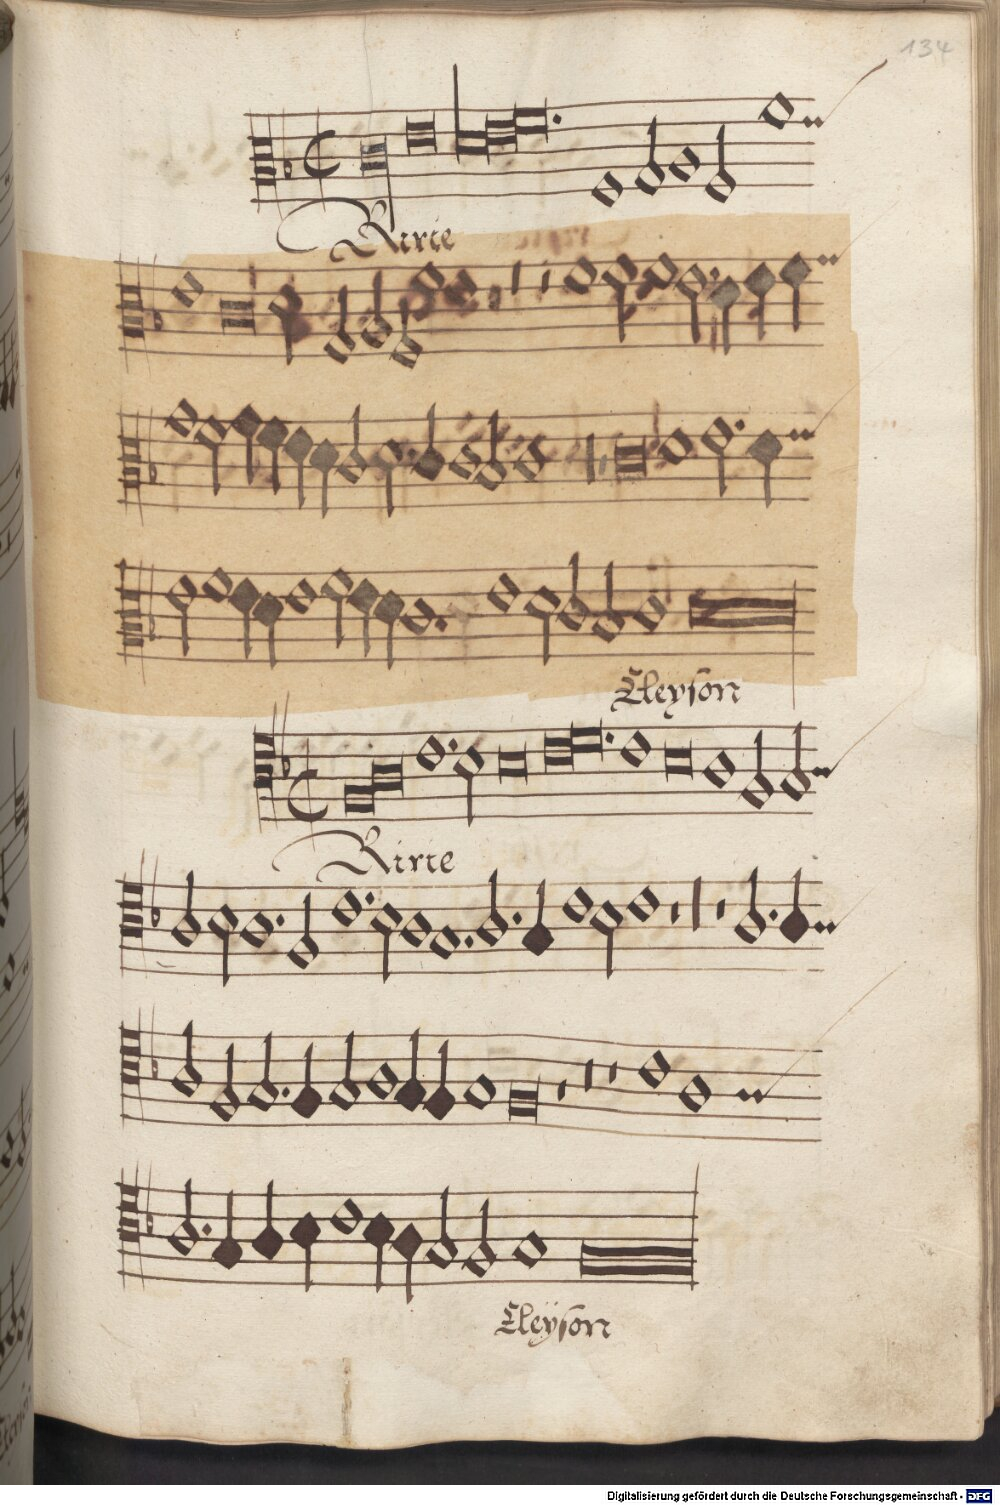 134
Kirie
Eleyson
Kirie
Eleÿson
Digitalisierung gefördert durch die Deutsche Forschungsgemeinschaft - DFG